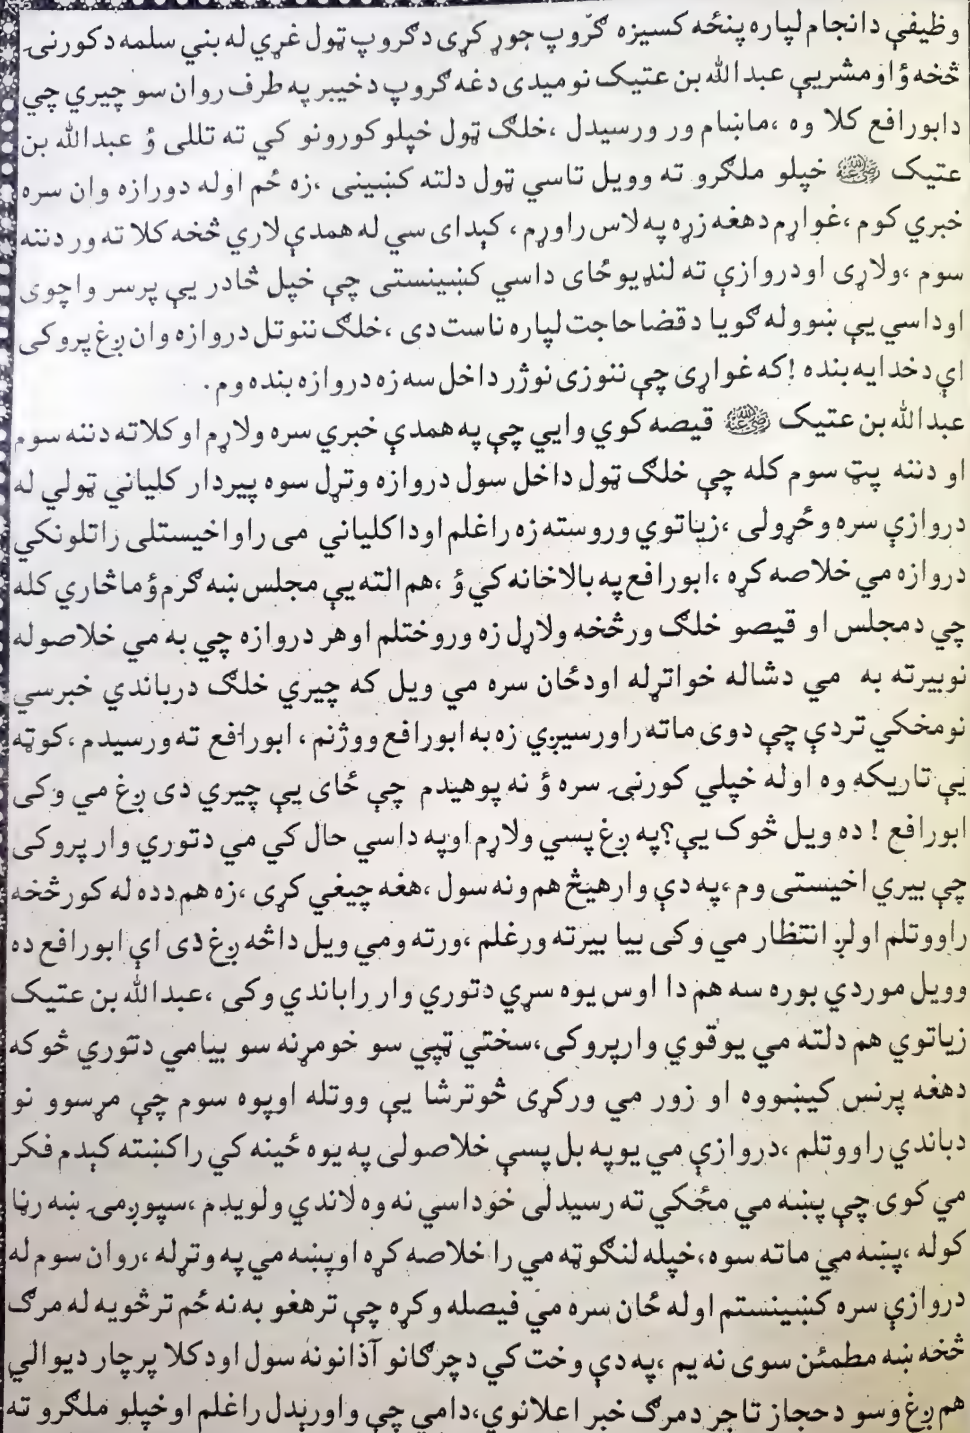 وظيفې دانجام لپاره پنځه کسيزه ګروپ جوړ کړی دګروپ ټول غړي له بني سلمه دکورنۍ
څخه ؤ او مشريې عبدالله بن عتيک نوميدی دغه ګروپ دخيبر په طرف روان سو چيري چي
دابورافع کلا وه ،ماښام ور ورسيدل ،خلګ ټول خپلو کورونو کي ته تللی ؤ عبدالله بن
عتيک رضی الله عنه خپلو ملګرو ته وويل تاسي ټول دلته کښينی ،زه ځم اوله دورازه وان سره
خبري کوم ،غواړم دهغه زړه په لاس راوړم ، کېدای سي له همدې لاري څخه کلا ته ور دننه
سوم ،ولاړی او دروازې ته لنډيو ځای داسي کښينستی چې خپل څادر يې پرسر واچوی
اوداسي يې ښووله ګويا دقضا حاجت لپاره ناست دی ،خلګ ننوتل دروازه وان ږغ پروکی
اې دخدايه بنده !که غواړی چې ننوزی نو ژر داخل سه زه دروازه بنده وم .
عبدالله بن عتيک رضی الله عنه قيصه کوي وايي چې په همدې خبري سره ولاړم اوکلاته دننه سوم
او دننه پټ سوم کله چې خلګ ټول داخل سول دروازه وتړل سوه پيردار کلياني ټولي له
دروازې سره وځړولی ،زياتوي وروسته زه راغلم اوداکلياني می راواخيستلی راتلونکي
دروازه مي خلاصه کړه ،ابورافع په بالاخانه کي ؤ ،هم الته يې مجلس ښه ګرم ؤ ماڅاري کله
چي دمجلس او قيصو خلګ ورڅخه ولاړل زه وروختلم اوهر دروازه چي به مي خلاصوله
نوبيرته به مي دشاله خواتړله اودځان سره مي ويل که چيري خلګ درباندي خبرسي
نومخکي تردې چې دوی ماته راورسيږي زه به ابورافع ووژنم ، ابورافع ته ورسيدم ،کوټه
يې تاريکه وه اوله خپلي کورنۍ سره ؤ نه پوهيدم چې ځای يې چيري دی ږغ مي وکی
ابورافع ! ده ويل څوک يې؟په ږغ پسي ولاړم اوپه داسي حال کي مي دتوري وار پروکی
چې بيري اخيستی وم ،په دې وارهيڅ هم ونه سول ،هغه چيغي کړی ،زه هم دده له کورڅخه
راووتلم اولږ انتظار مي وکی بيا بيرته ورغلم ،ورته ومي ويل داڅه ږغ دی اې ابورافع ده
وويل موردي بوره سه هم دا اوس يوه سړي دتوري وار راباندي وکی ،عبدالله بن عتيک
زياتوي هم دلته مي يو قوي وارپروکی،سختي ټپي سو خومړنه سو بيامي دتوري څوکه
دهغه پرنس کيښووه او زور مي ورکړی څوترشا يې ووتله اوپوه سوم چې مړسوو نو
دباندي راووتلم ،دروازې مي يو په بل پسې خلاصولی په يوه ځينه کي راکښته کېدم فکر
مي کوی چې پښه مي مځکي ته رسيدلی خوداسي نه وه لاندي ولويدم ،سپوږمۍ ښه رڼا
کوله ،پښه مي ماته سوه،خپله لنګوټه مي را خلاصه کړه اوپښه مي په وتړله ،روان سوم له
دروازې سره کښينستم اوله ځان سره مي فيصله وکړه چې ترهغو به نه ځم ترڅويه له مرګ
څخه ښه مطمئن سوی نه يم ،په دې وخت کي دچرګانو آذانونه سول اودکلا پرچار ديوالي
هم ږغ وسو دحجاز تاجر دمرګ خبر اعلانوي،دامي چې واورېدل راغلم اوخپلو ملګرو ته